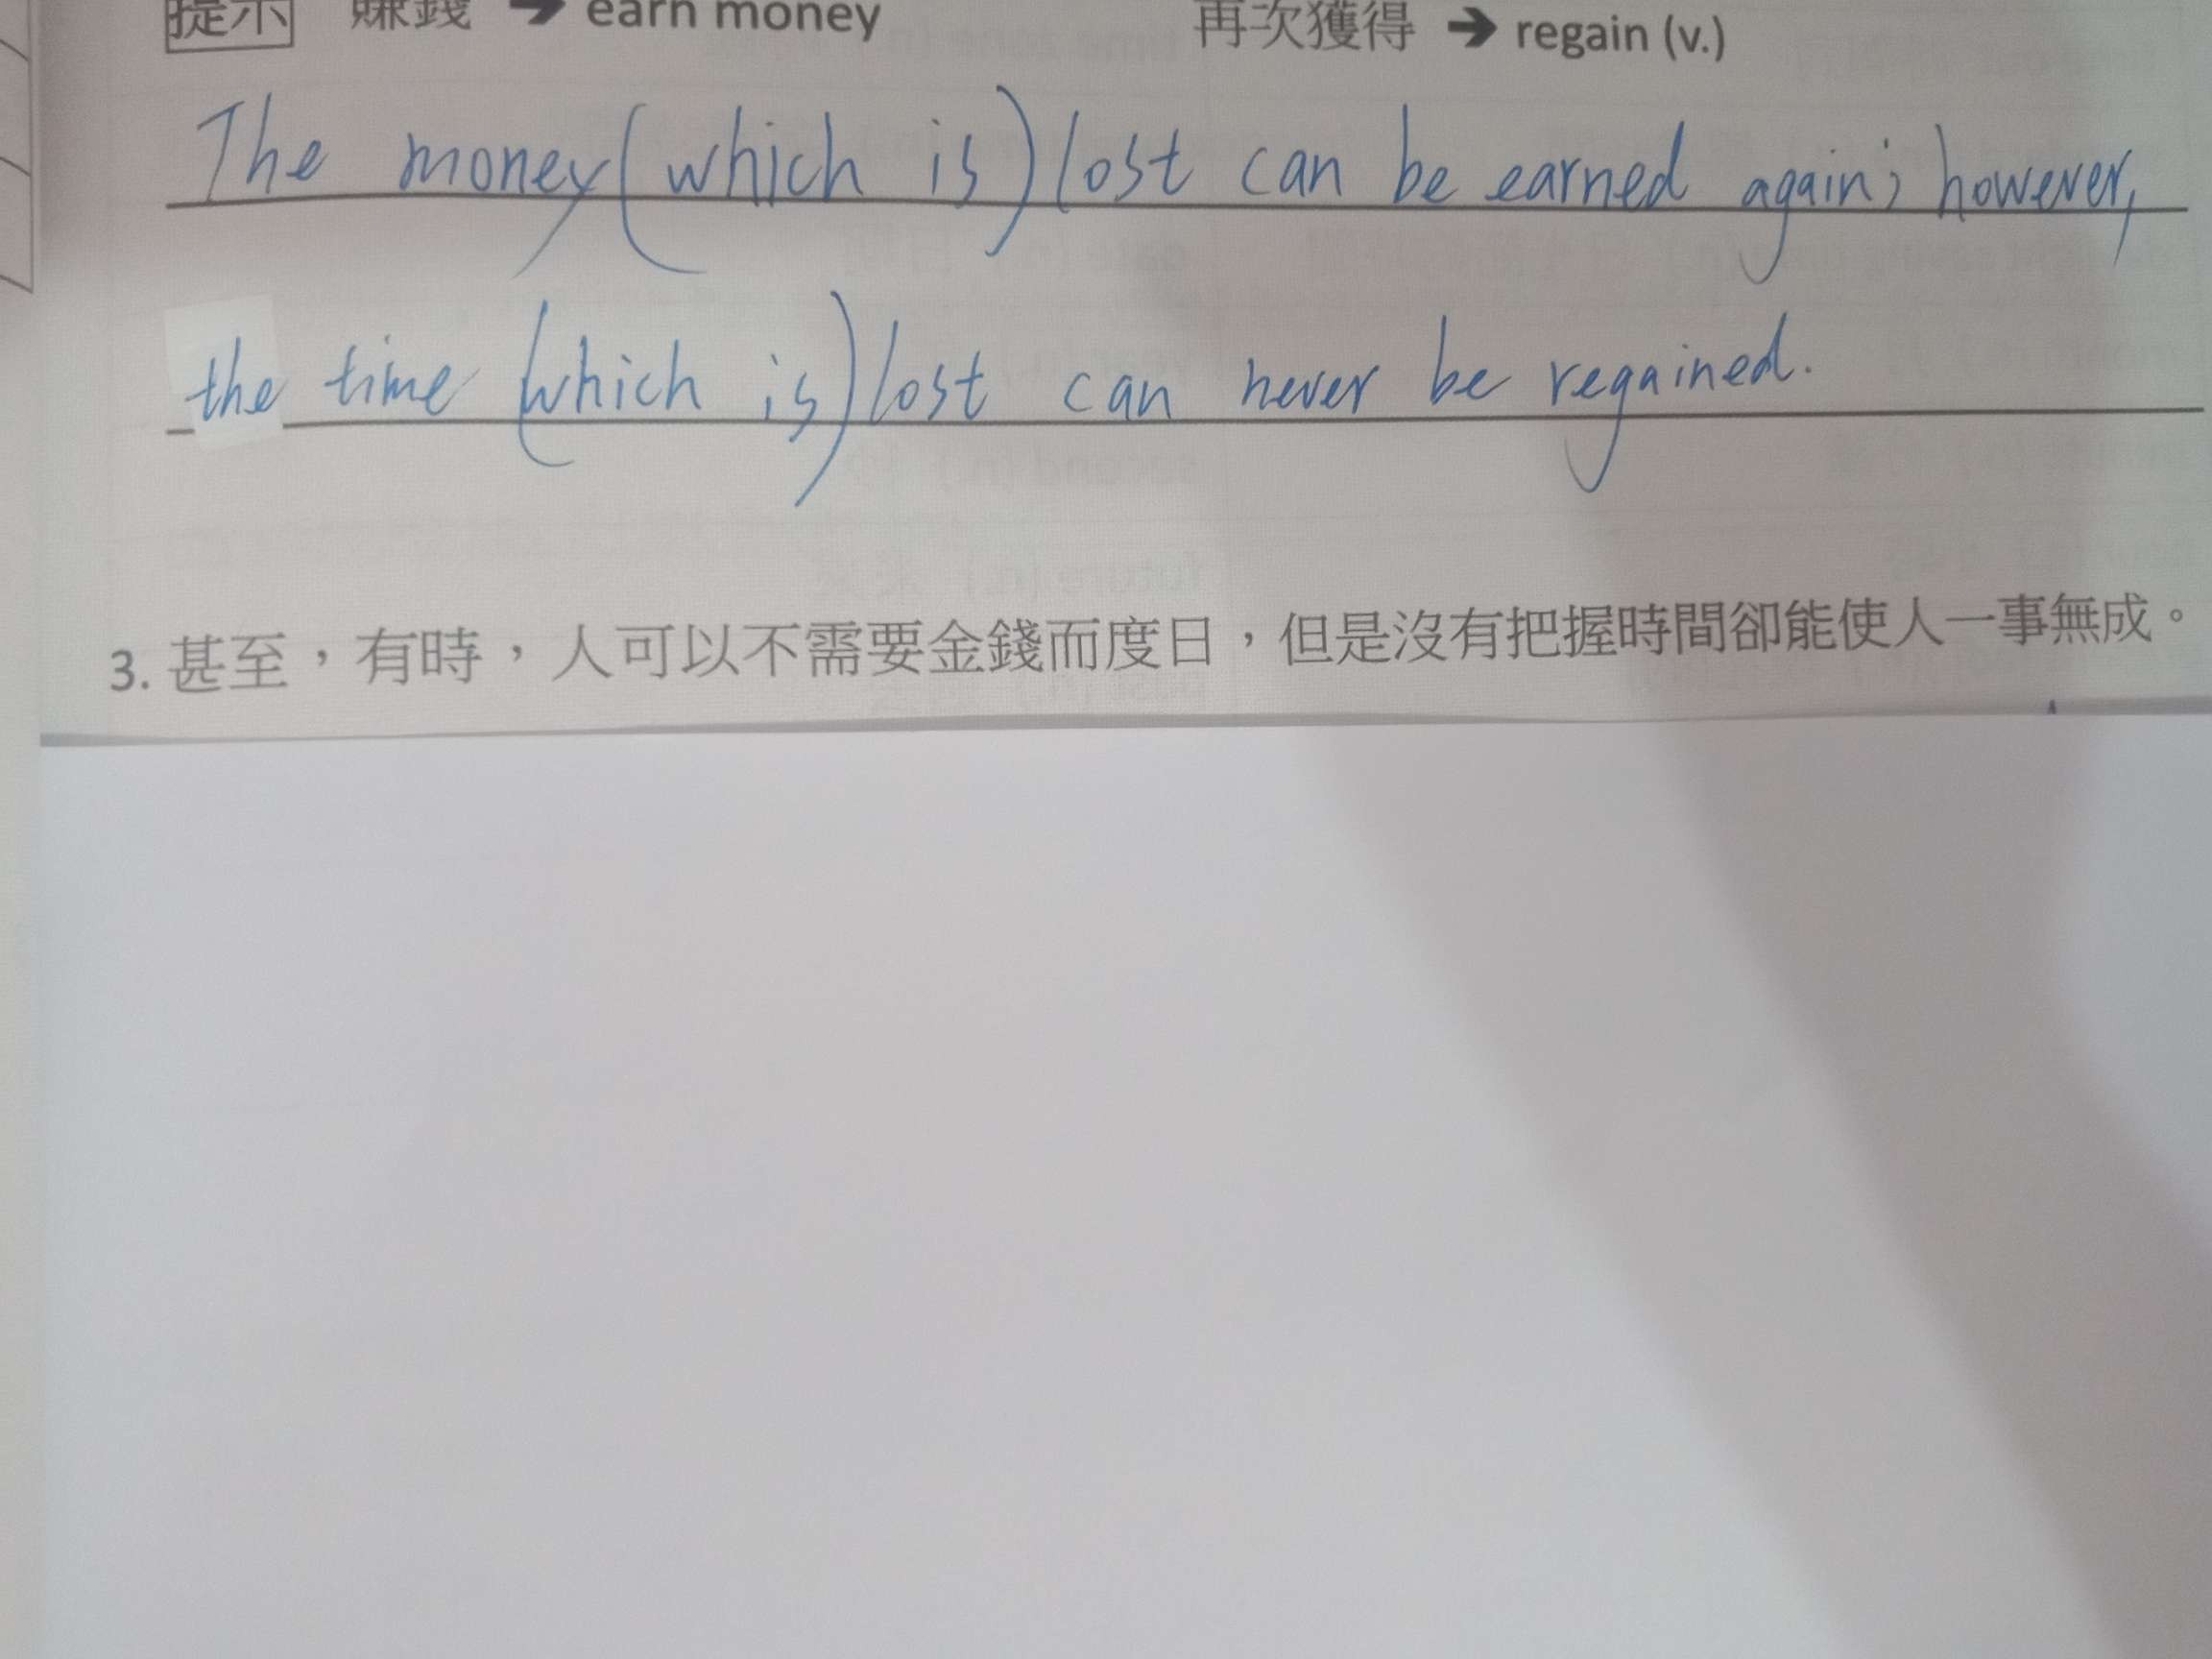 提示 賺錢 ➔ earn money 再次獲得 ➔ regain (v.)
The money (which is) lost can be earned again; however,
the time (which is) lost can never be regained.
3. 甚至，有時，人可以不需要金錢而度日，但是沒有把握時間卻能使人一事無成。